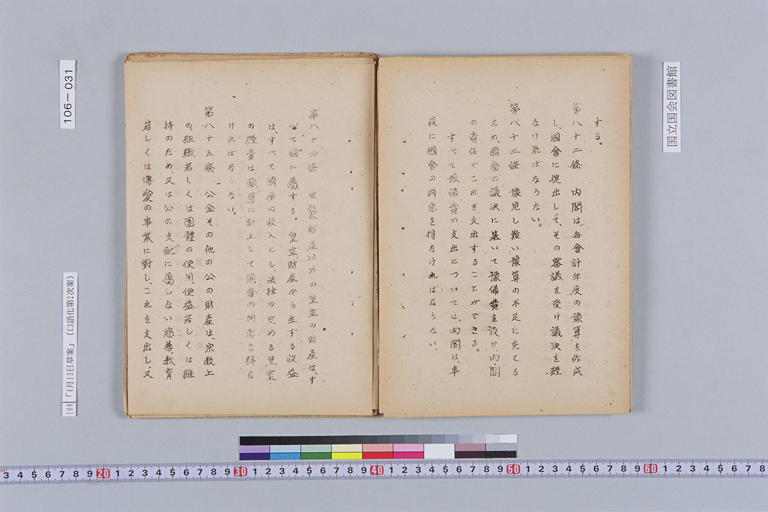 する。
第八十二條　内閣は、毎會計年度の豫算を作成
し、國會に提出して、その審議を受け議決を經
なければならない。
第八十三條　豫見し難い豫算の不足に充てる
ため、國會の議決に基いて豫備費を設け、内閣
の責任でこれを支出することができる。
すべて豫備費の支出については、内閣は、事
後に國會の同意を得なければならない。
第八十四條　世襲財産以外の皇室の財産は、す
べて國に屬する。皇室財産から生ずる收益
は、すべて國庫の收入とし、法律の定める皇室
の經費は、豫算に計上して國會の同意を得な
ければならない。
第八十五條　公金その他の公の財産は、宗教上
の組織若しくは團體の使用、便益若しくは維
持のため、又は公の支配に屬しない慈善、教育
若しくは博愛の事業に對し、これを支出し、又
106－031
106「4月13日草案」（口語化第2次案）
国立国会図書館
3 4 5 6 7 8 9 20 1 2 3 4 5 6 7 8 9 30 1 2 3 4 5 6 7 8 9 40 1 2 3 4 5 6 7 8 9 50 1 2 3 4 5 6 7 8 9 60 1 2 3 4 5 6 7 8